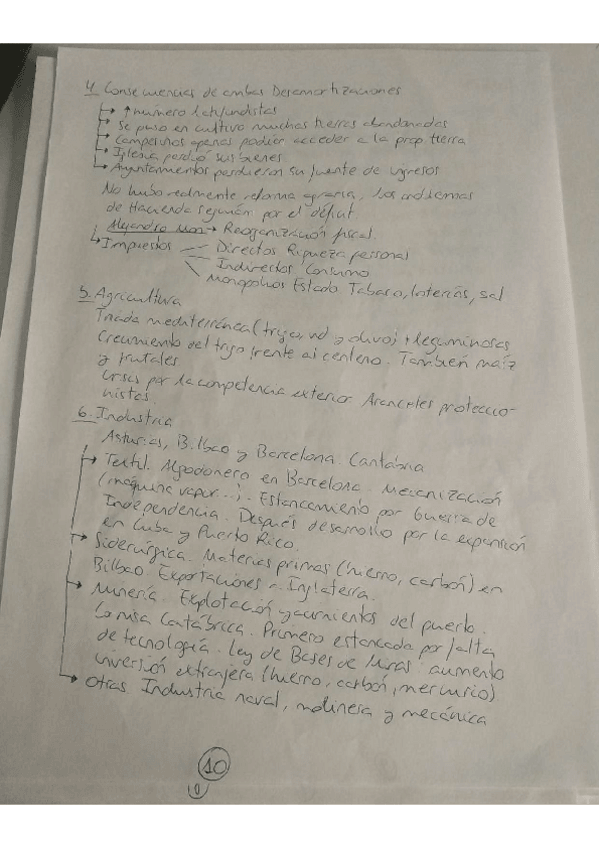 4. Consecuencias de ambas Desamortizaciones
↑ número latifundistas
Se puso en cultivo muchas tierras abandonadas
Campesinos apenas podían acceder a la prop tierra
Iglesia perdió sus bienes
Ayuntamientos perdieron su fuente de ingresos
No hubo realmente reforma agraria, los problemas
de Hacienda seguían por el déficit
Alejandro Mon → Reorganización fiscal
Impuestos Directos Riqueza personal
Indirectos Consumo
Monopolios Estado Tabaco, loterías, sal
5. Agricultura
Triada mediterránea (trigo, vid y olivo) + leguminosas
Crecimiento del trigo frente al centeno. También maíz
y frutales
Crisis por la competencia exterior Aranceles proteccio-
nistas
6. Industria
Asturias, Bilbao y Barcelona. Cantabria
Textil. Algodonero en Barcelona. Mecanización
(máquina vapor...). Estancamiento por Guerra de
Independencia. Después desarrollo por la expansión
en Cuba y Puerto Rico.
Siderúrgica. Materias primas (hierro, carbón) en
Bilbao Exportaciones a Inglaterra.
Minería. Explotación yacimientos del puerto.
Cornisa Cantábrica. Primero estancada por falta
de tecnología. Ley de Bases de Minas aumento
inversión extranjera (hierro, carbón, mercurio)
Otras Industria naval, molinera y mecánica
10